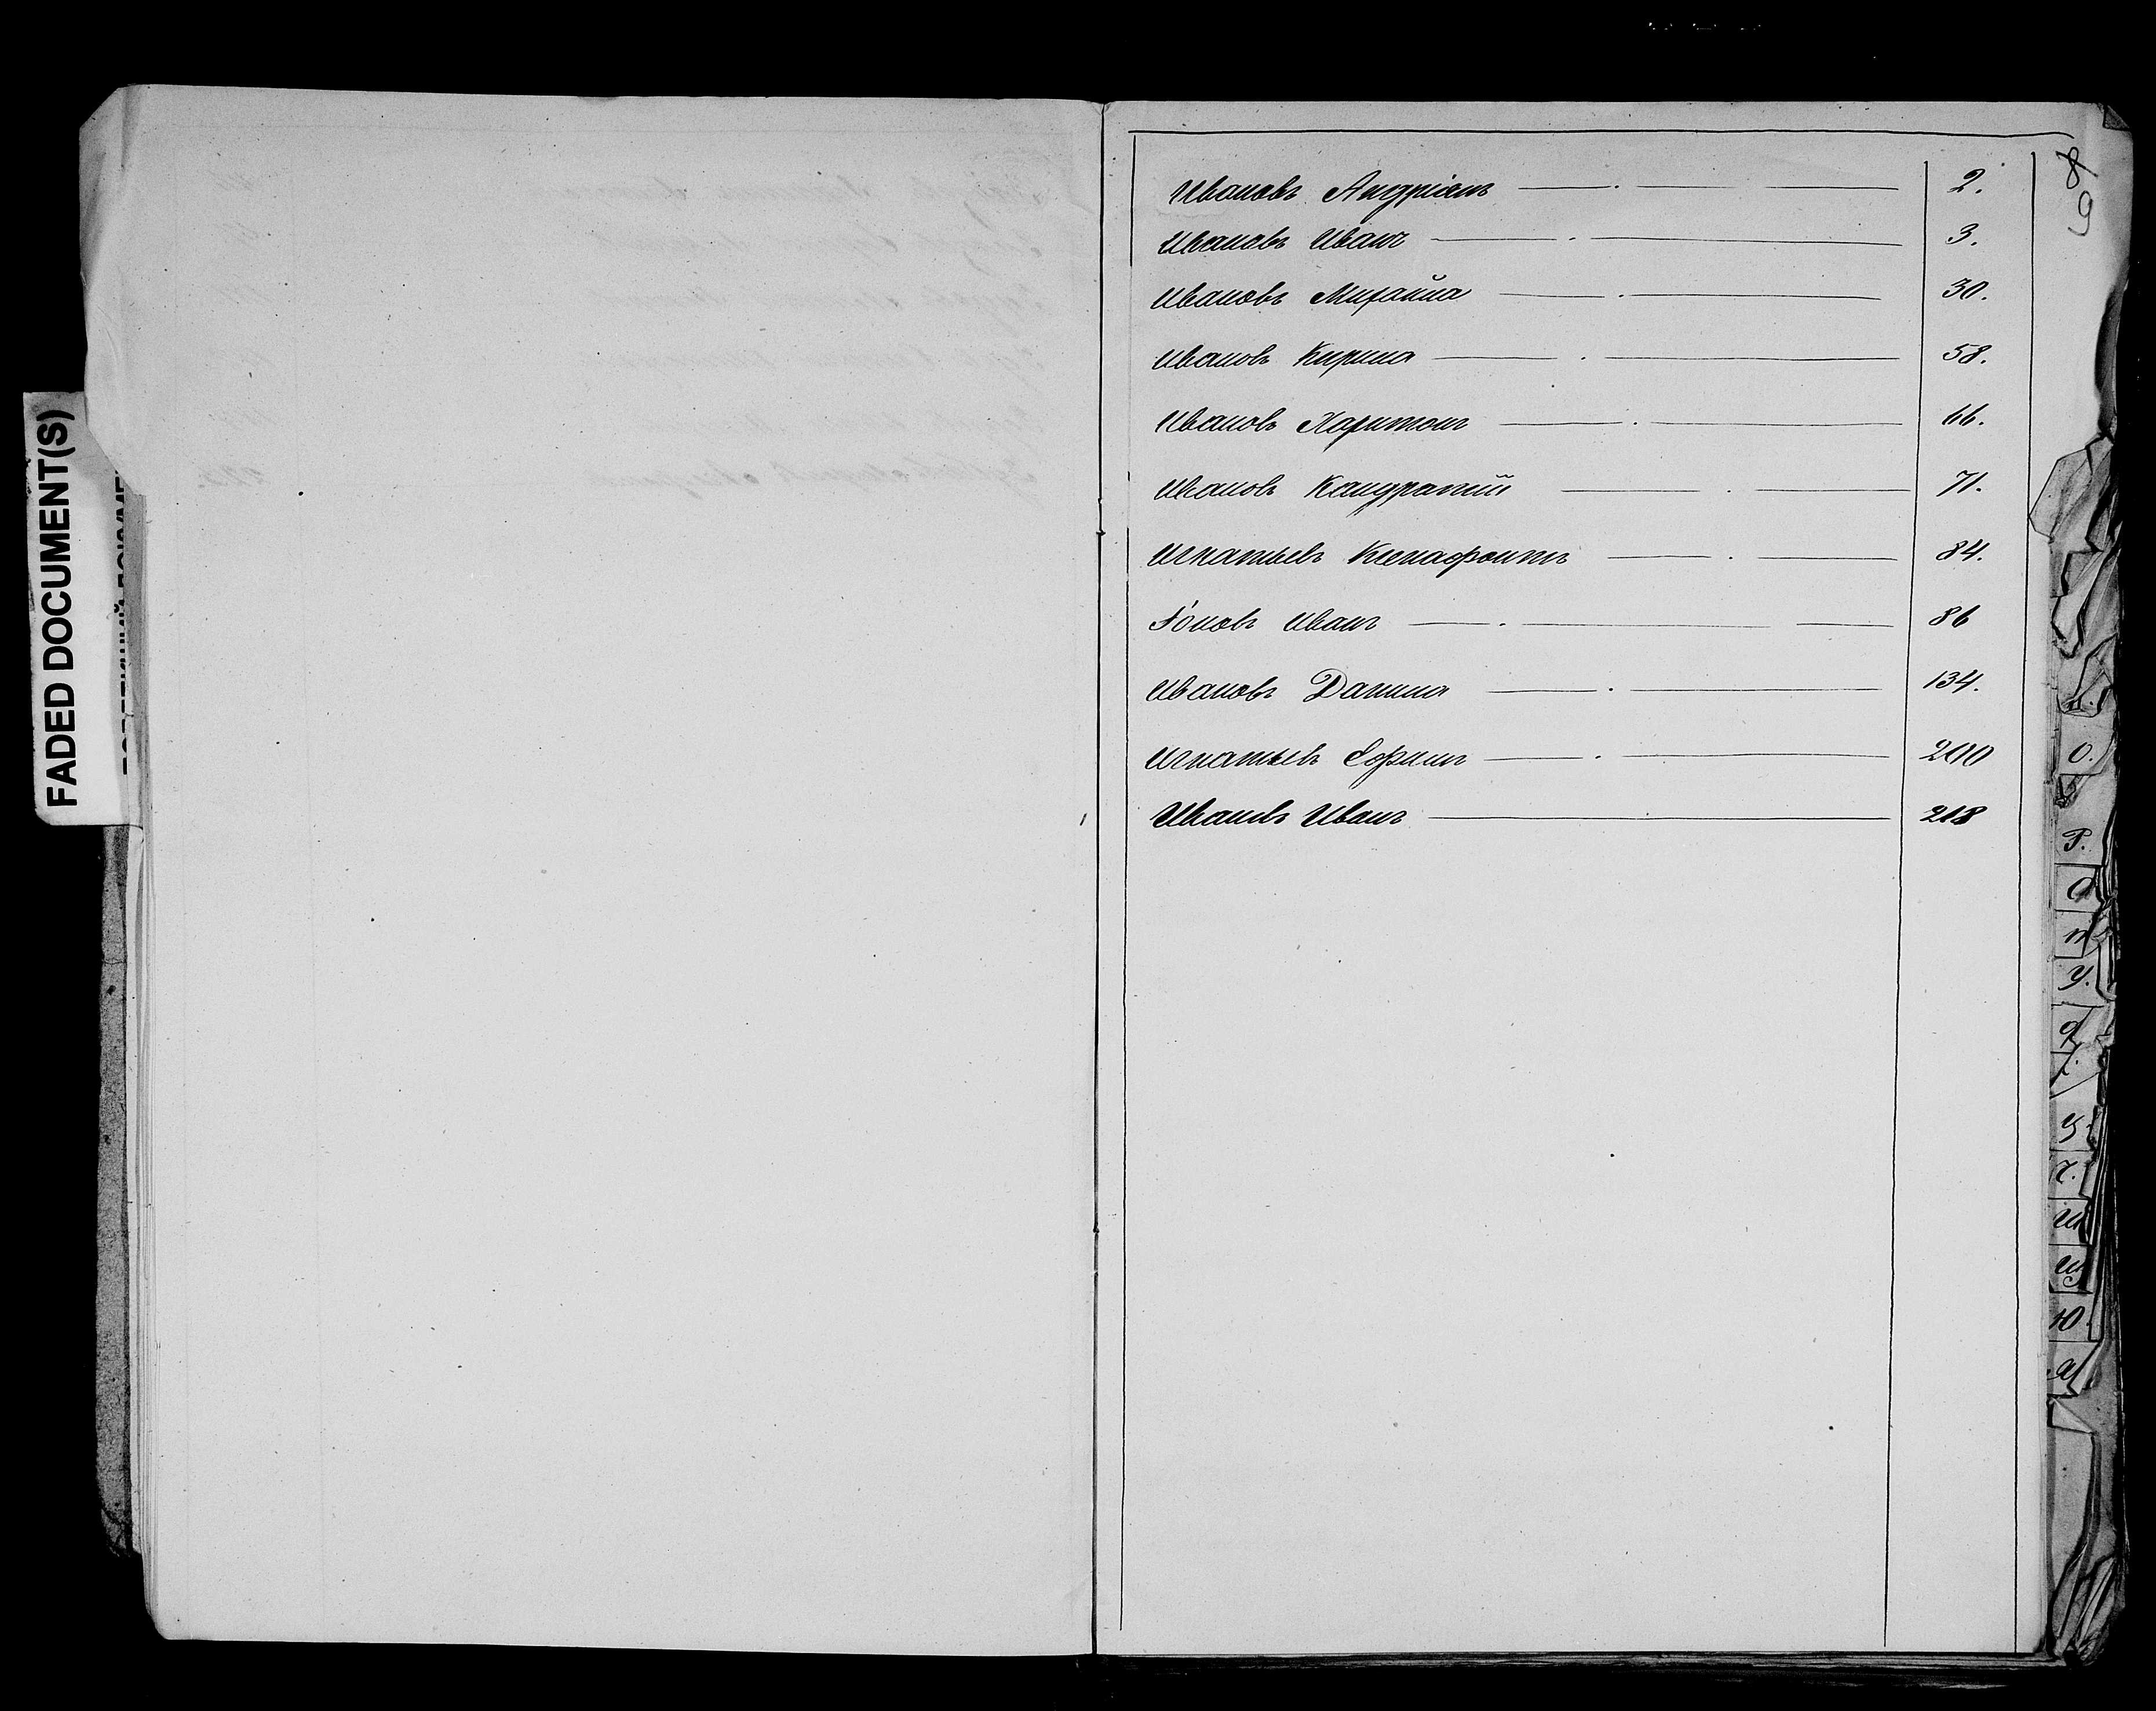 FADED DOCUMENT(S)
Ивановъ Андріанъ 2.
Ивановъ Иванъ 3.
Ивановъ Михайла 30.
Ивановъ Кирила 58.
Ивановъ Харитонъ 66.
Ивановъ Кандратій 71.
Игнатьевъ Ксенафонтъ 84.
Іоновъ Иванъ 86
Ивановъ Данила 134.
Игнатьевъ Ефимъ 200
Ивановъ Иванъ 218
О.
Р.
С
У.
Ц.
Ч.
Ш
Щ
Ю